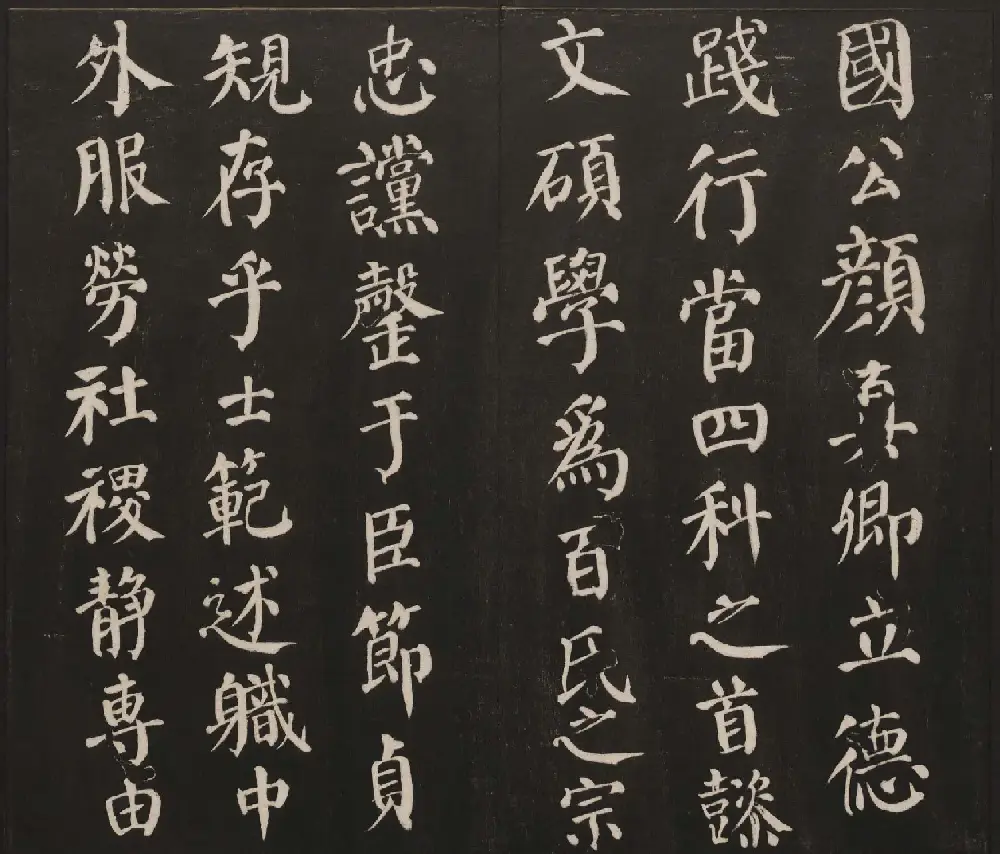 國公顏真卿立德
踐行當四科之首懿
文碩學為百氏之宗
忠讜罄于臣節貞
規存乎士範述職中
外服勞社稷靜專由